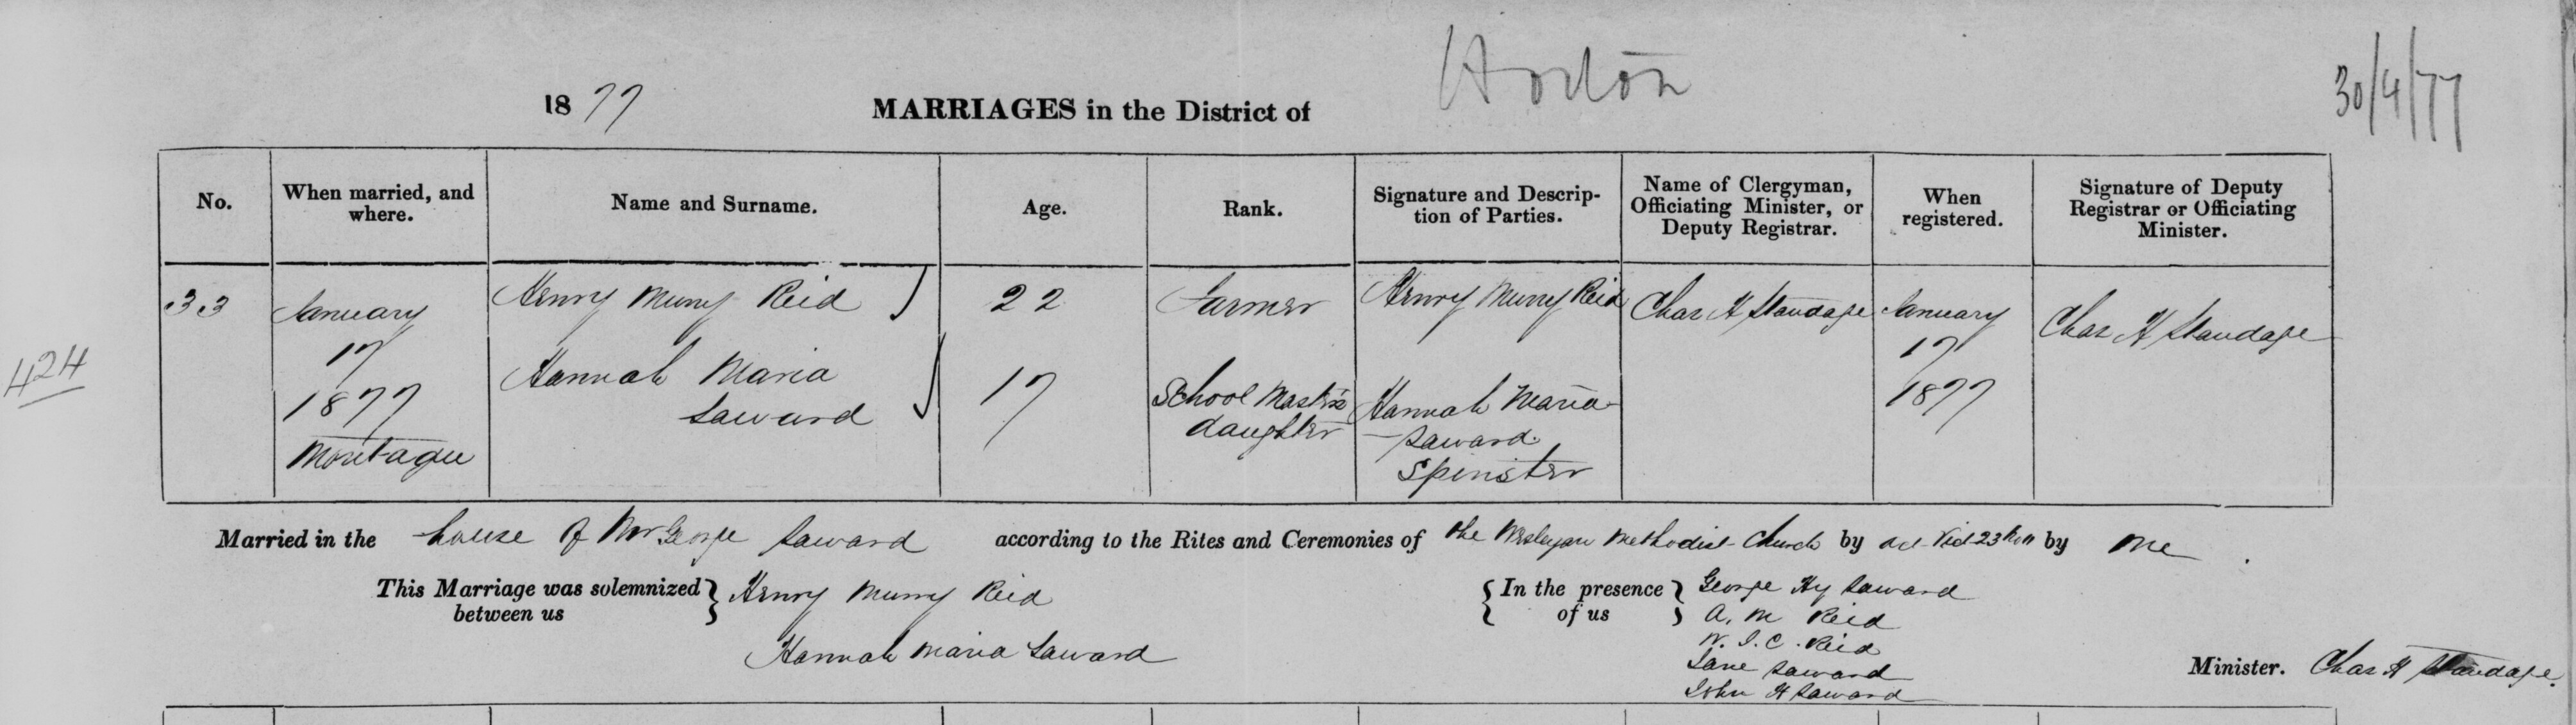 Horton
30/4/77
1877 MARRIAGES in the District of
No.
When married, and where.
Name and Surname.
Age.
Rank.
Signature and Descrip-
tion of Parties.
Name of Clergyman,
Officiating Minister, or
Deputy Registrar.
When
registered.
Signature of Deputy
Registrar or Officiating
Minister.
424
33
January
17
1877
Montague
Henry Murry Reid
Hannah Maria
Saward
22
17
Farmer
School Master's
daughter
Henry Murry Reid
Hannah Maria
Saward
Spinster
Chas H Standage
January
17
1877
Chas H Standage
Married in the house of Mr George Saward according to the Rites and Ceremonies of the Wesleyan Methodist Church by by me
This Marriage was solemnized
between us
Henry Murry Reid
Hannah Maria Saward
In the presence
of us
George Hy Saward
A. M Reid
W. I. C. Reid
Jane Saward
John H Saward
Minister. Chas H Standage.